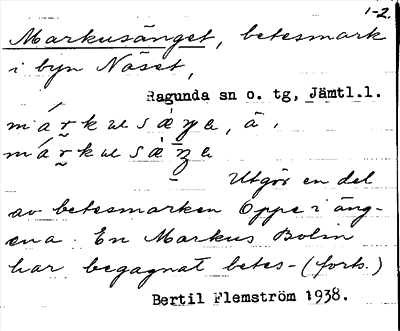 1-2.
Markusänget, betesmark
i byn Näset,
Ragunda sn o. tg, Jämtl.l.
márkusàŋe, ä,
márkusàŋe
Utgör en del
av betesmarken Oppe i äng-
ena. En Markus Bolin
har begagnat betes- (forts.)
Bertil Flemström 1938.